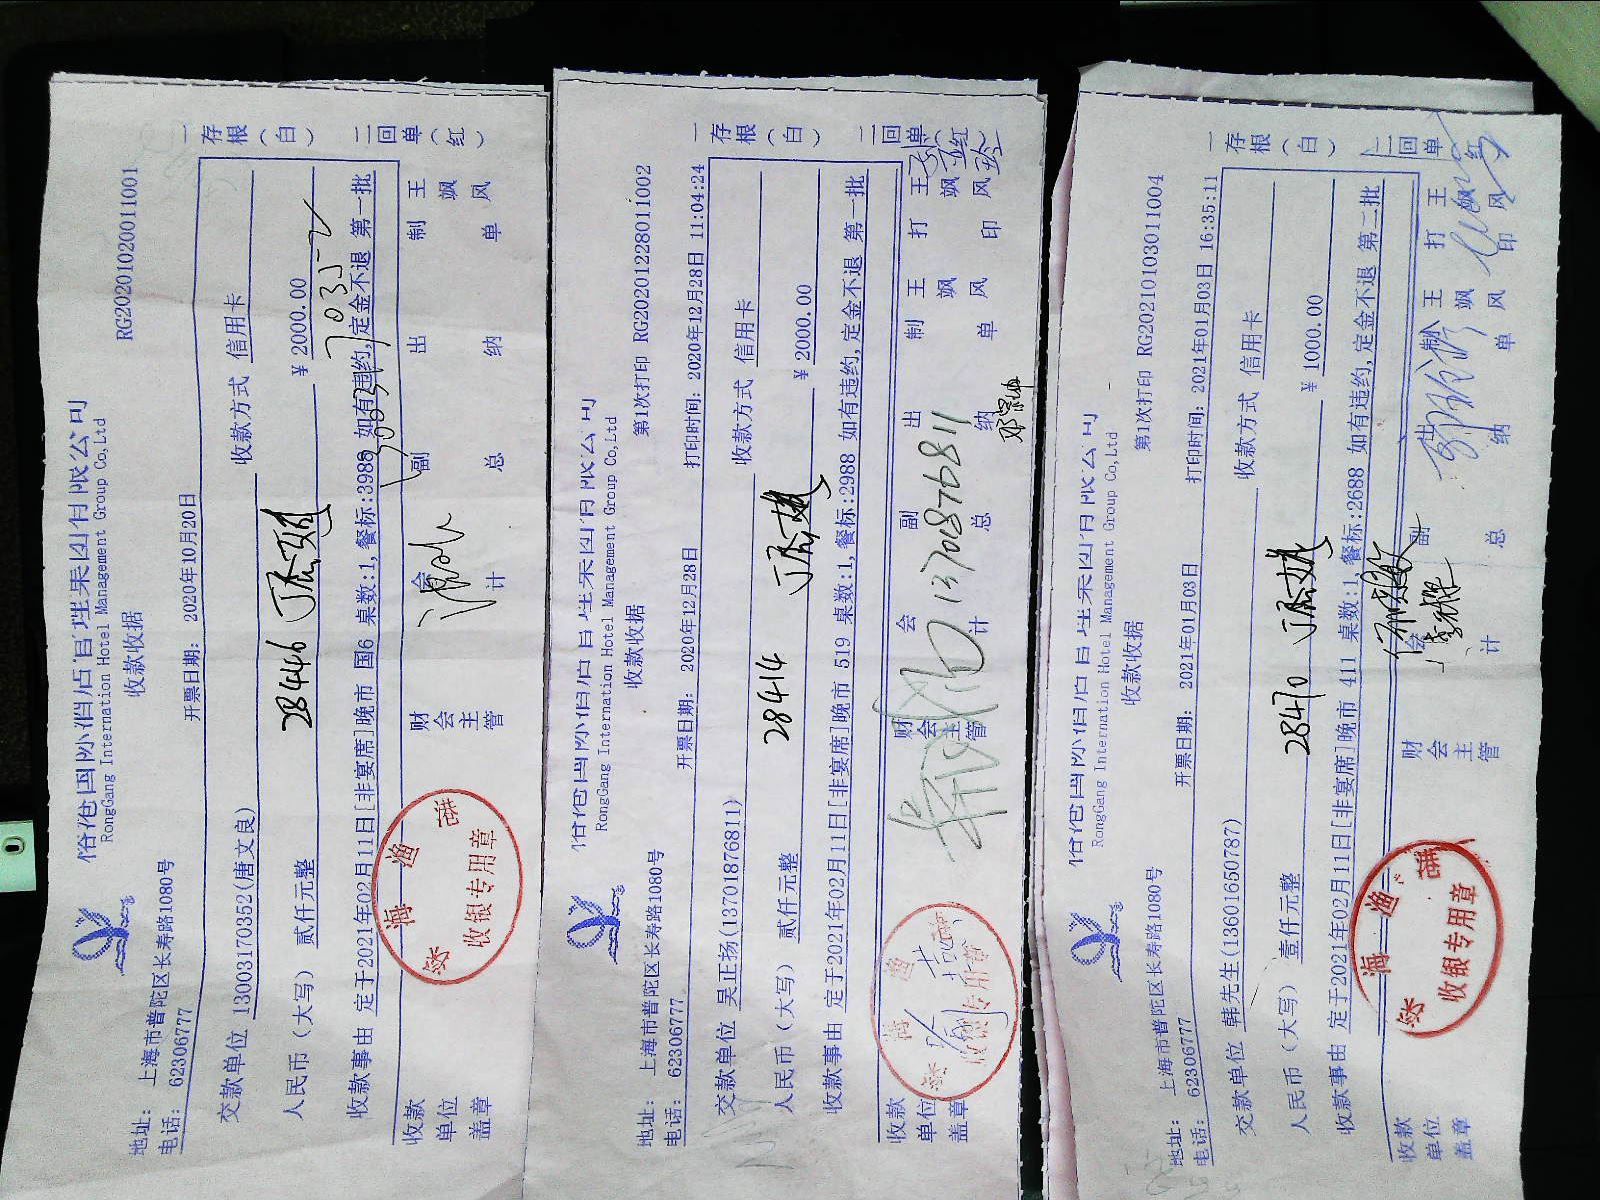 RongGang International Hotel Management Group Co,Ltd
收款收据
RG20201020011001
地址: 上海市普陀区长寿路1080号
电话: 62306777
开票日期: 2020年10月20日
交款单位 13003170352(唐文良)
收款方式 信用卡
人民币（大写） 贰仟元整
28446
¥ 2000.00
收款事由 定于2021年02月11日[非宴席]晚市 国6 桌数:1,餐标:3988 如有违约,定金不退 第一批
收款单位盖章
财会主管
会计
副总
出纳
制单
王飒风
一存根（白）
二回单（红）
收银专用章
RongGang International Hotel Management Group Co,Ltd
收款收据
第1次打印 RG20201228011002
地址: 上海市普陀区长寿路1080号
电话: 62306777
开票日期: 2020年12月28日
打印时间: 2020年12月28日 11:04:24
交款单位 吴正扬(13701876811)
收款方式 信用卡
人民币（大写） 贰仟元整
28414
¥ 2000.00
收款事由 定于2021年02月11日[非宴席]晚市 519 桌数:1,餐标:2988 如有违约,定金不退 第一批
收款单位盖章
财会主管
会计
13701876811
副总
出纳
制单
王飒风
打印
王飒风
一存根（白）
二回单（红）
RongGang International Hotel Management Group Co,Ltd
收款收据
第1次打印 RG20210103011004
地址: 上海市普陀区长寿路1080号
电话: 62306777
开票日期: 2021年01月03日
打印时间: 2021年01月03日 16:35:11
交款单位 韩先生(13601650787)
收款方式 信用卡
人民币（大写） 壹仟元整
28470
¥ 1000.00
收款事由 定于2021年02月11日[非宴席]晚市 411 桌数:1,餐标:2688 如有违约,定金不退 第二批
收款单位盖章
财会主管
会计
副总
出纳
制单
王飒风
打印
王飒风
一存根（白）
二回单（红）
收银专用章